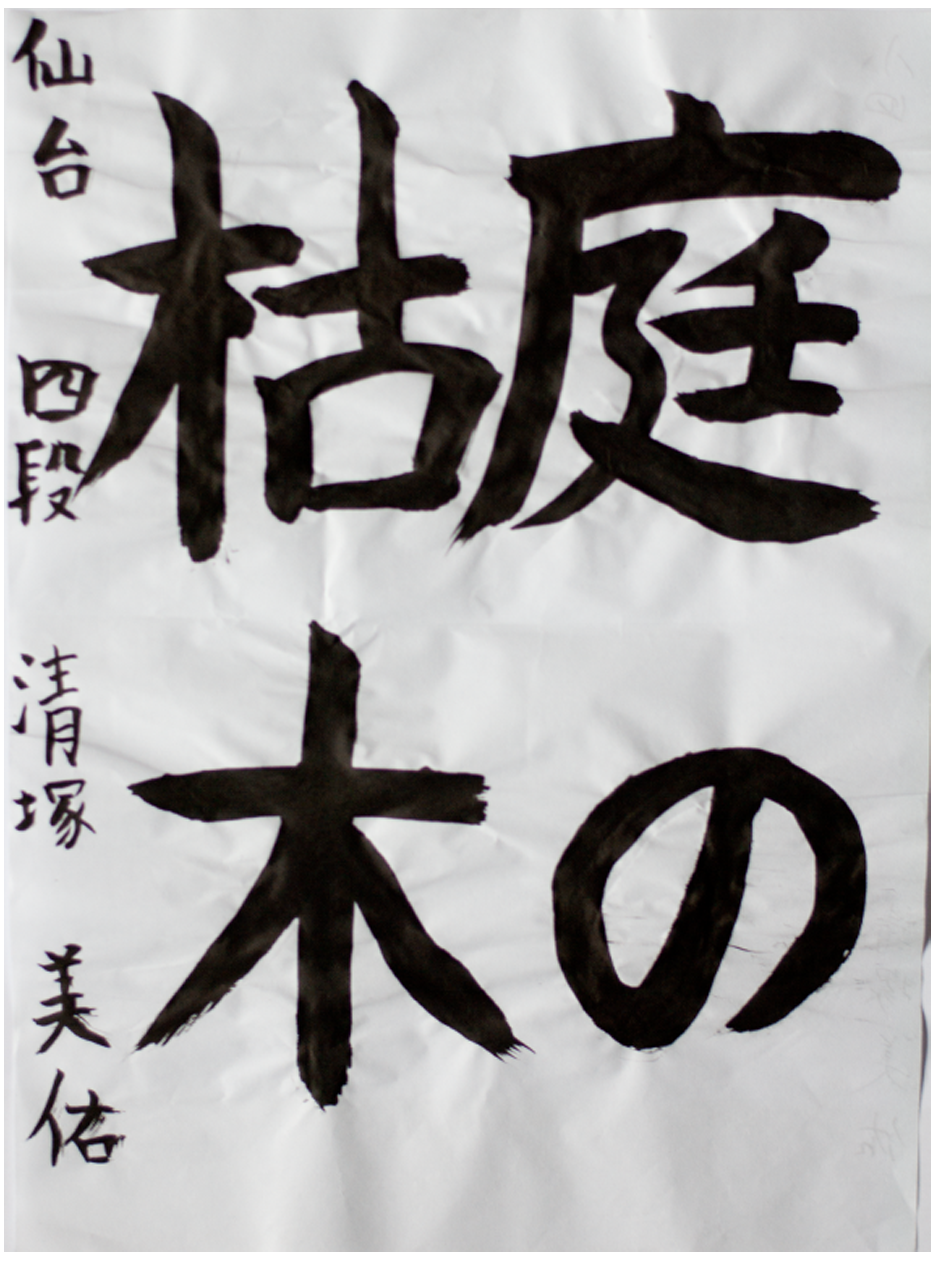 庭の
枯木
仙台 四段 清塚 美佑